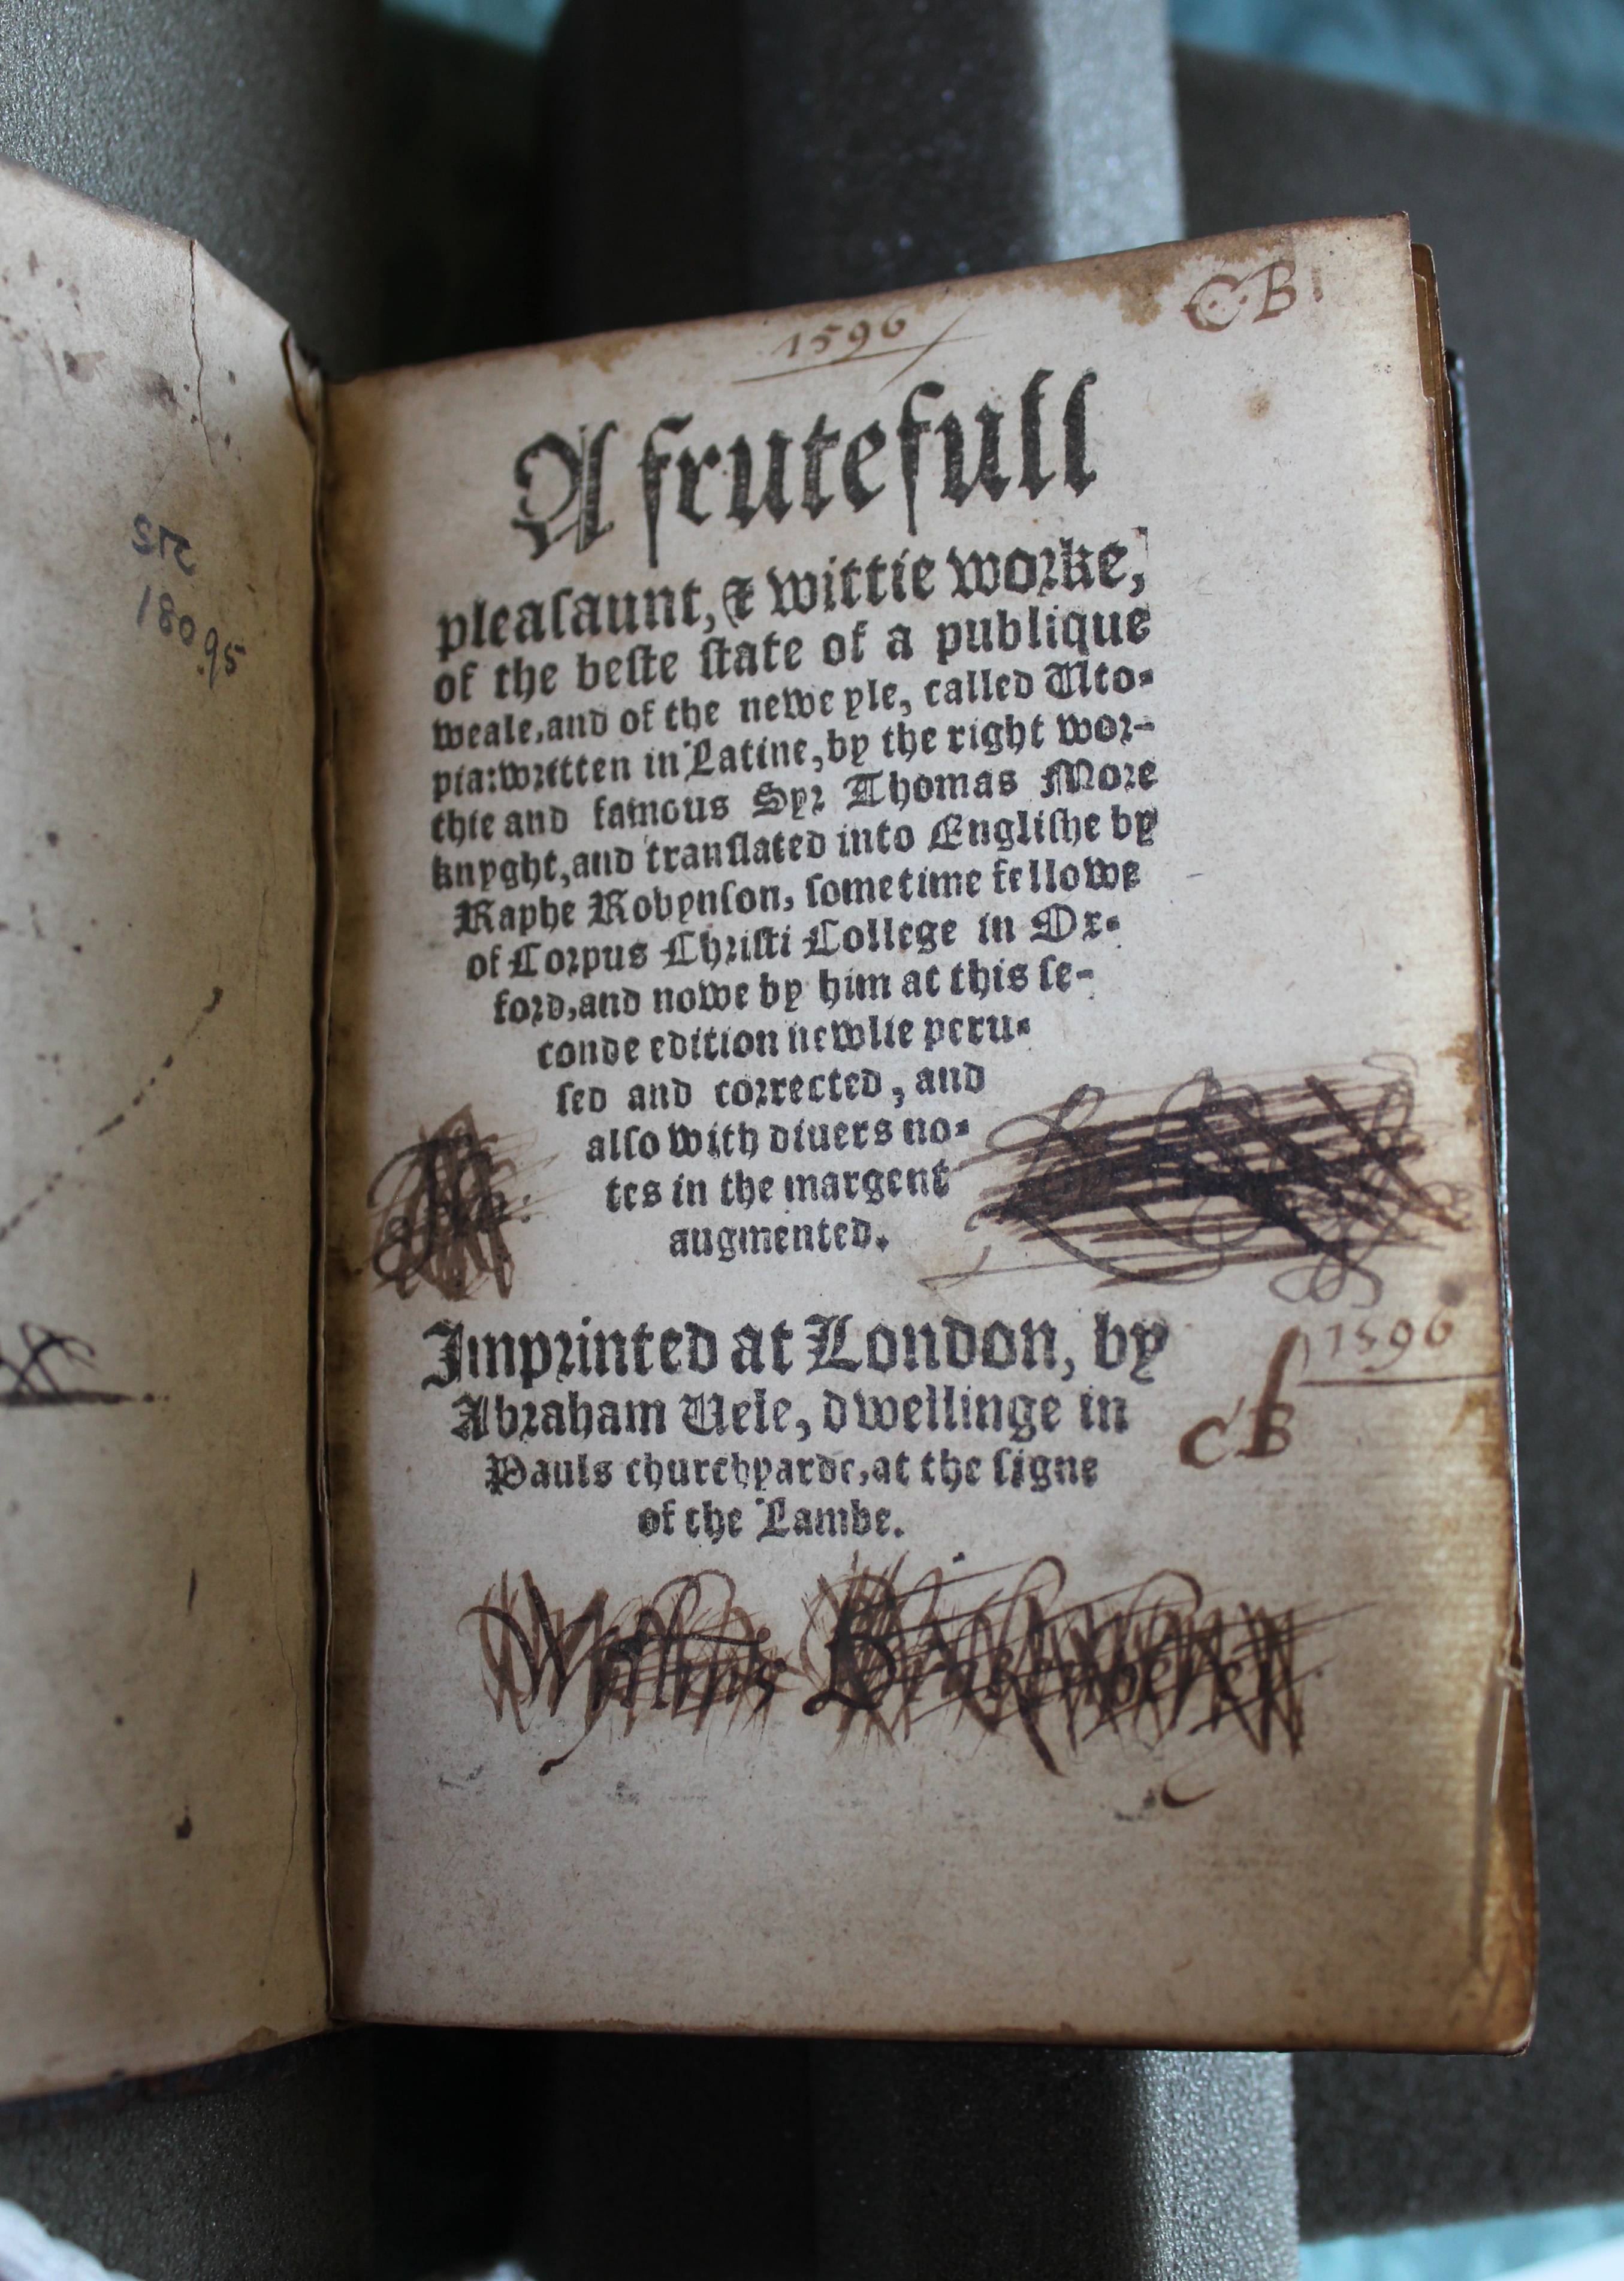 STC
18095
1596
CB
A frutefull
pleasaunt, & wittie worke,
of the beste state of a publique
weale, and of the newe yle, called Uto-
pia: written in Latine, by the right wor-
thie and famous Syr Thomas More
knyght, and translated into Englishe by
Raphe Robynson, sometime fellowe
of Corpus Christi College in Ox-
ford, and nowe by him at this se-
conde edition newlie peru-
sed and corrected, and
also with diuers no-
tes in the margent
augmented.
Imprinted at London, by
Abraham Uele, dwellinge in
Pauls churchyarde, at the signe
of the Lambe.
1596
CB